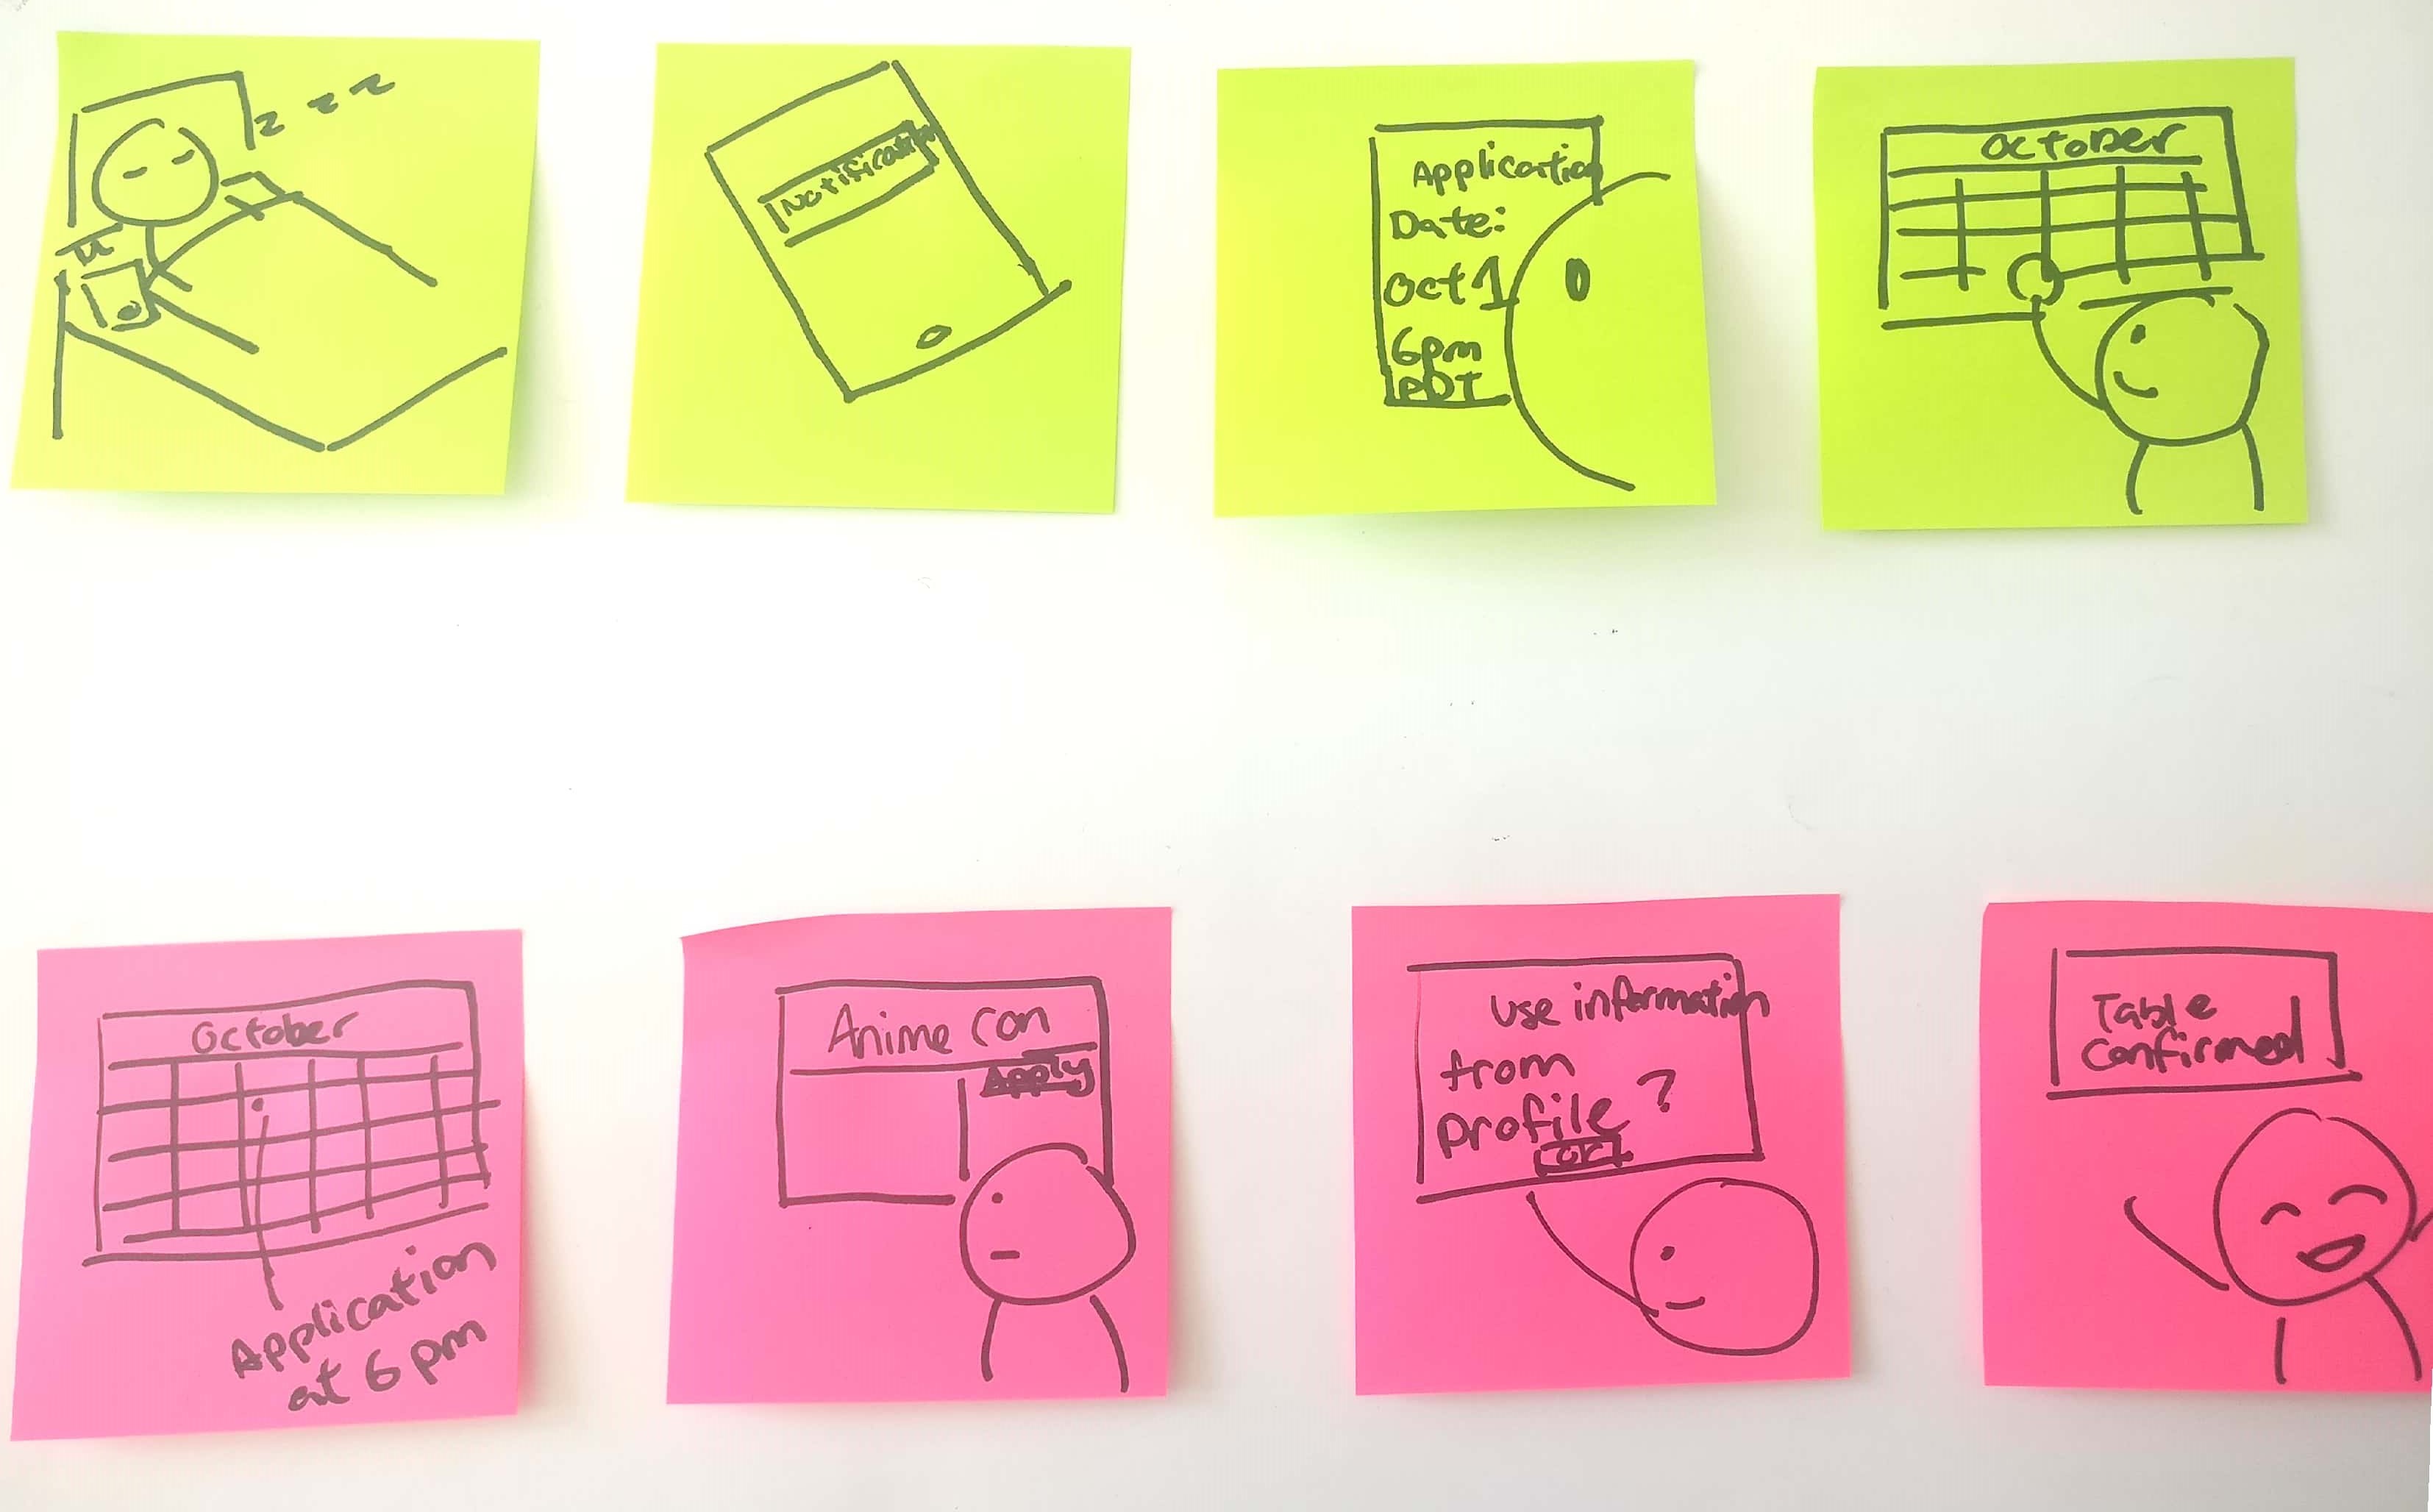 z z z
Notification
Application
Date:
Oct 1
6pm
PDT
October
October
Application
at 6 pm
Anime Con
Apply
Use information
from
profile ?
OK
Table
Confirmed